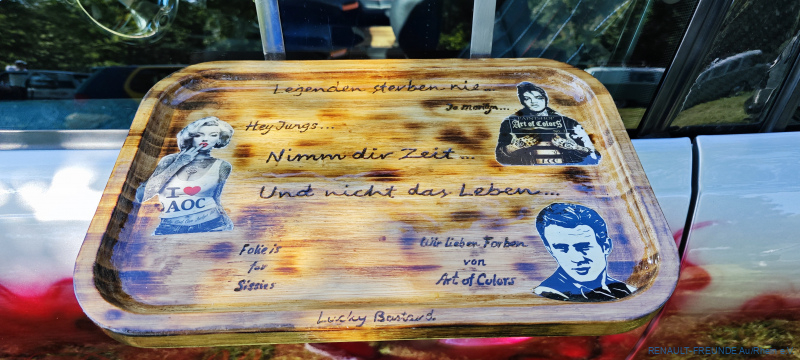 Legenden sterben nie...
So Marilyn...
Hey Jungs...
Art of Colors
Nimm dir Zeit...
Und nicht das Leben...
I ❤
AOC
Folie is
for
Sissies
Wir lieben Farben
von
Art of Colors
Lucky Bastard